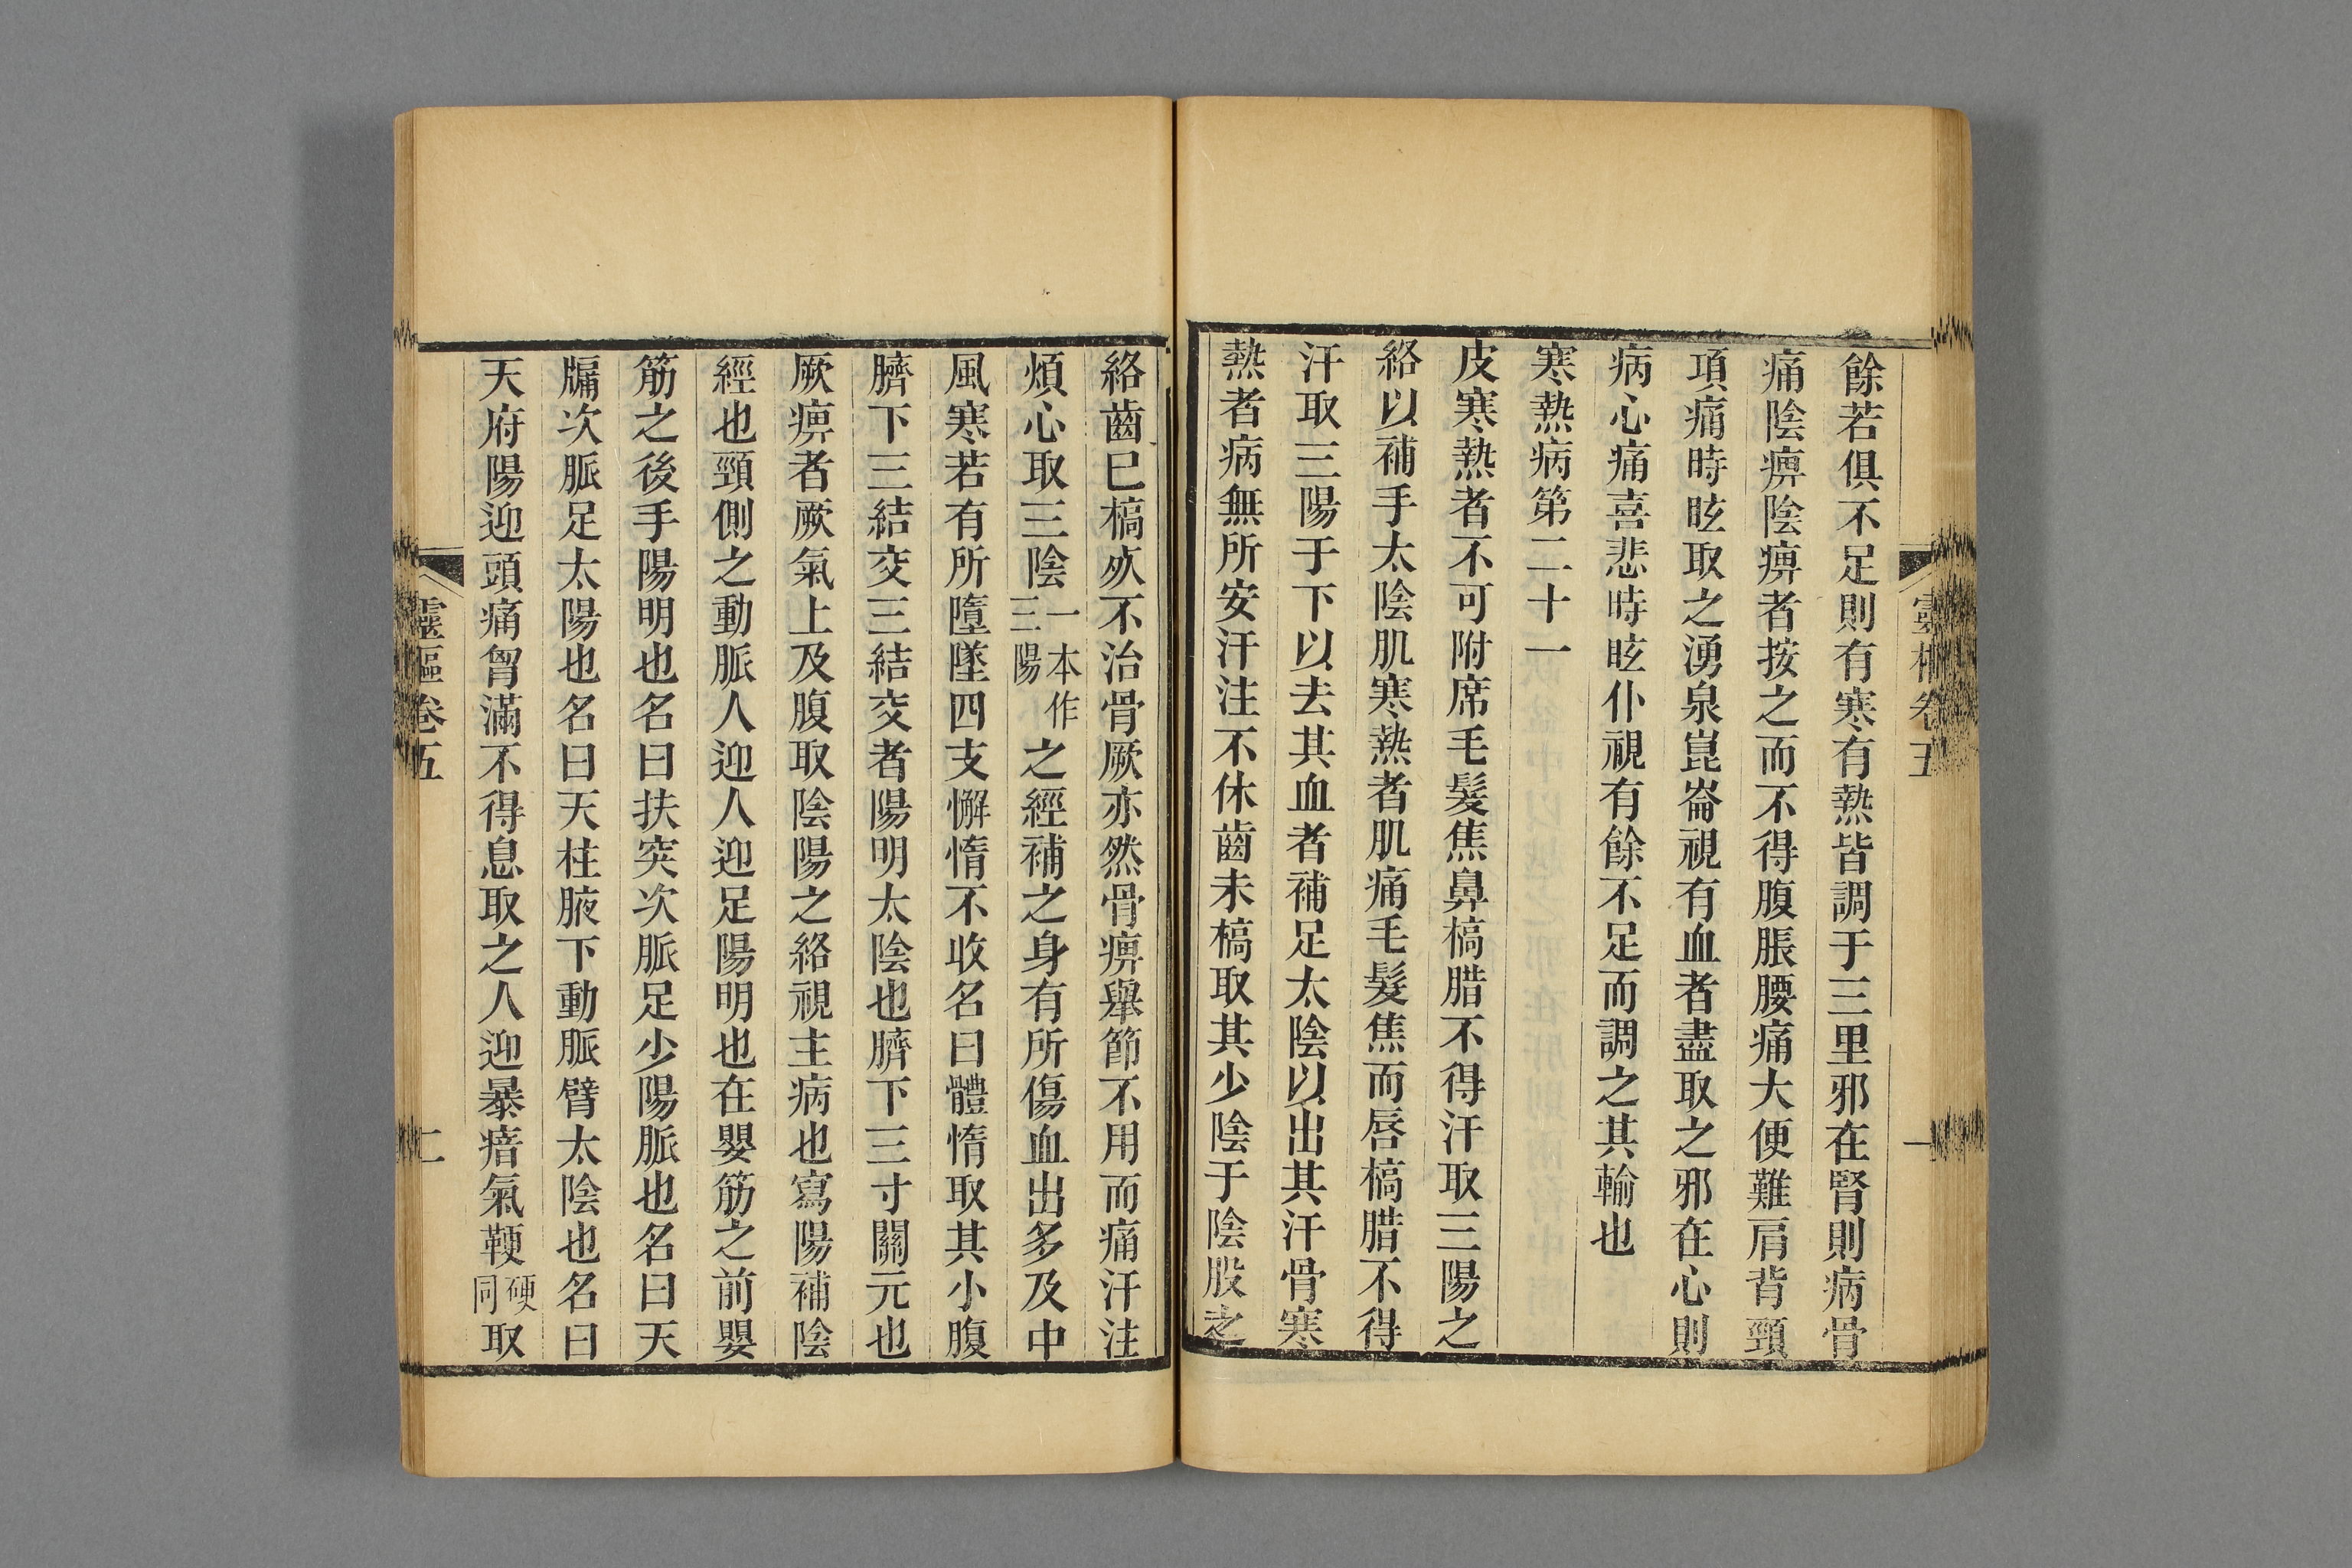 靈樞卷五
一
餘若俱不足則有寒有熱皆調于三里邪在腎則病骨
痛陰痹陰痹者按之而不得腹脹腰痛大便難肩背頸
項痛時眩取之湧泉崑崙視有血者盡取之邪在心則
病心痛喜悲時眩仆視有餘不足而調之其輸也
寒熱病第二十一
皮寒熱者不可附席毛髮焦鼻槁腊不得汗取三陽之
絡以補手太陰肌寒熱者肌痛毛髮焦而唇槁腊不得
汗取三陽于下以去其血者補足太陰以出其汗骨寒
熱者病無所安汗注不休齒未槁取其少陰于陰股之
絡齒已槁死不治骨厥亦然骨痹舉節不用而痛汗注
煩心取三陰一本作三陽之經補之身有所傷血出多及中
風寒若有所墮墜四支懈惰不收名曰體惰取其小腹
臍下三結交三結交者陽明太陰也臍下三寸關元也
厥痹者厥氣上及腹取陰陽之絡視主病也寫陽補陰
經也頸側之動脈人迎人迎足陽明也在嬰筋之前嬰
筋之後手陽明也名曰扶突次脈足少陽脈也名曰天
牖次脈足太陽也名曰天柱腋下動脈臂太陰也名曰
天府陽迎頭痛胷滿不得息取之人迎暴瘖氣鞕硬同取
靈樞卷五
二